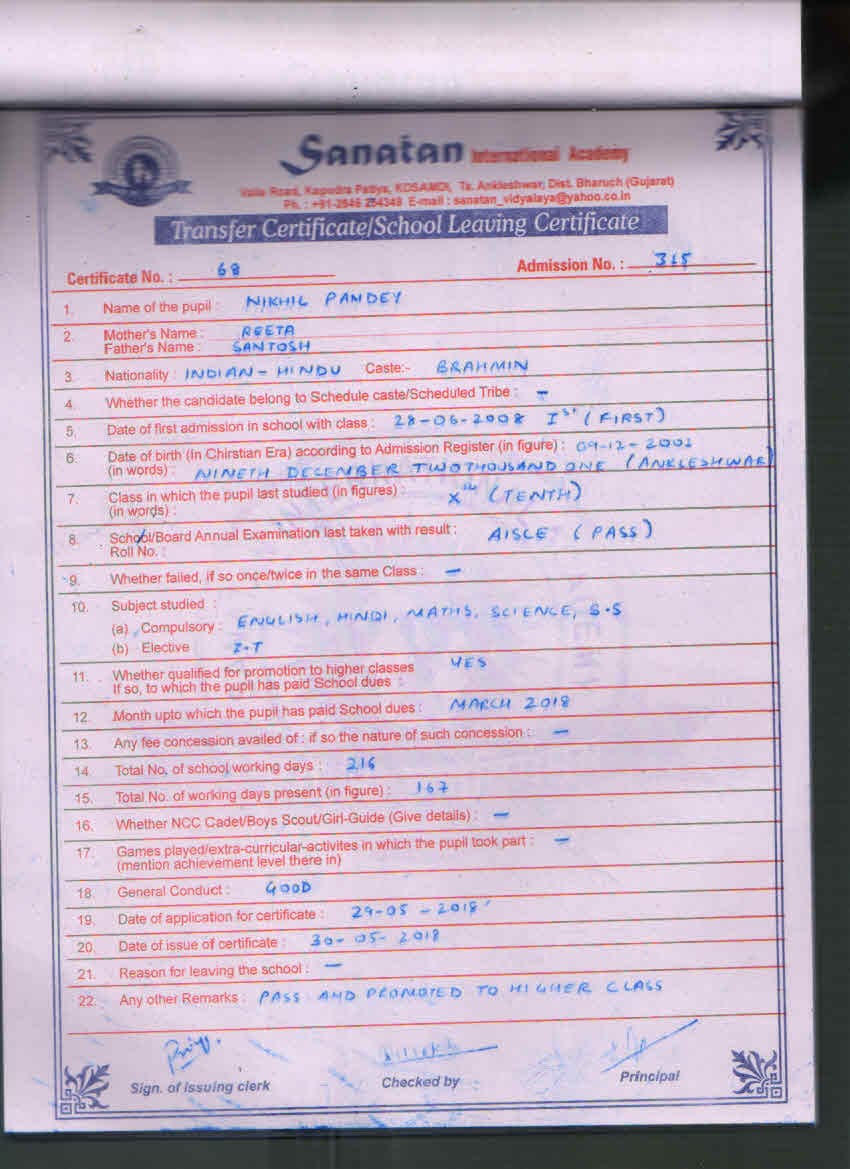 Sanatan International Academy
Valia Road, Kapodra Patiya, KOSAMDI, Ta. Ankleshwar, Dist. Bharuch (Gujarat)
Ph. : +91-2646 254349 E-mail : sanatan_vidyalaya@yahoo.co.in
Transfer Certificate/School Leaving Certificate
Certificate No. : 68 Admission No. : 315
1. Name of the pupil : NIKHIL PANDEY
2. Mother's Name : REETA
Father's Name : SANTOSH
3. Nationality : INDIAN - HINDU Caste:- BRAHMIN
4. Whether the candidate belong to Schedule caste/Scheduled Tribe : —
5. Date of first admission in school with class : 28-06-2008 Ist (FIRST)
6. Date of birth (In Chirstian Era) according to Admission Register (in figure) : 09-12-2001
(in words) : NINETH DECEMBER TWOTHOUSAND ONE (ANKLESHWAR)
7. Class in which the pupil last studied (in figures) : Xth (TENTH)
(in words) :
8. School/Board Annual Examination last taken with result : AISCE (PASS)
Roll No. :
9. Whether failed, if so once/twice in the same Class : —
10. Subject studied :
(a) Compulsory : ENGLISH, HINDI, MATHS, SCIENCE, S.S
(b) Elective I.T
11. Whether qualified for promotion to higher classes YES
If so, to which the pupil has paid School dues :
12. Month upto which the pupil has paid School dues : MARCH 2018
13. Any fee concession availed of : if so the nature of such concession : —
14. Total No. of school working days : 216
15. Total No. of working days present (in figure) : 167
16. Whether NCC Cadet/Boys Scout/Girl-Guide (Give details) : —
17. Games played/extra-curricular-activites in which the pupil took part : —
(mention achievement level there in)
18. General Conduct : GOOD
19. Date of application for certificate : 29-05-2018
20. Date of issue of certificate : 30-05-2018
21. Reason for leaving the school : —
22. Any other Remarks : PASS AND PROMOTED TO HIGHER CLASS
Sign. of issuing clerk Checked by Principal